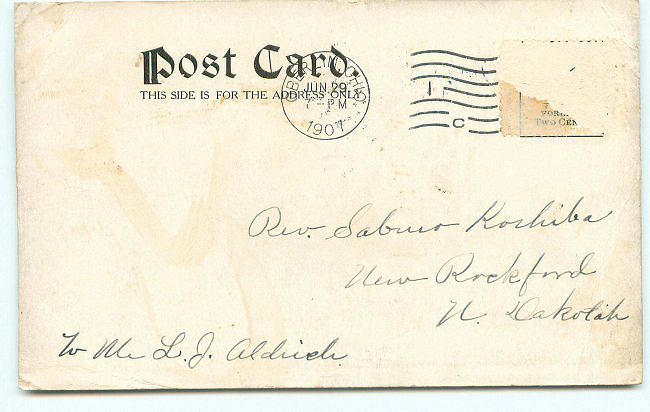 Post Card.
THIS SIDE IS FOR THE ADDRESS ONLY
OBERLIN, OHIO
JUN 29
7 - PM
1907
C
FOR
TWO CEN
Rev. Saburo Koshiba
New Rockford
N. Dakotah
L. J. Aldrich